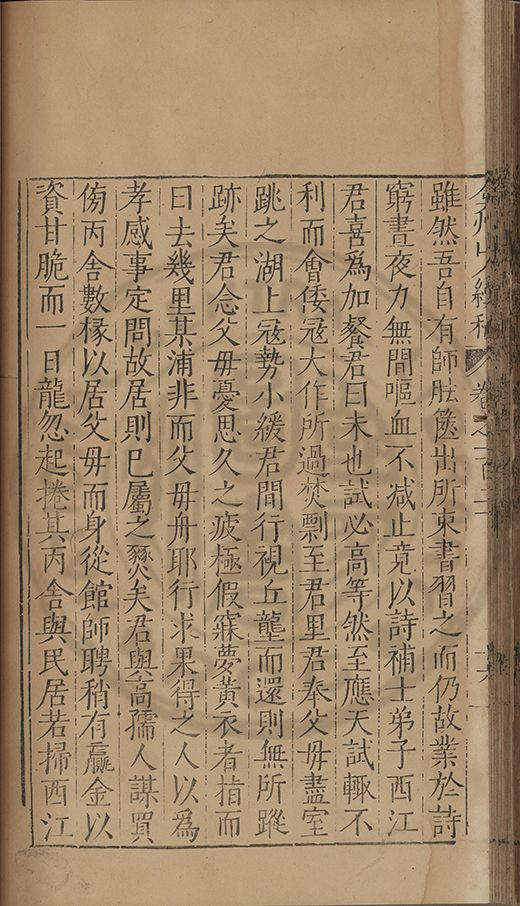 弇州山人續稿 卷之一百二十 十六
雖然吾自有師胠篋出所東書習之而仍故業於詩
窮晝夜力無間嘔血不減止竟以詩補士弟子西江
君喜爲加餐君曰未也試必高等然至應天試輒不
利而會倭冦大作所過焚剽至君里君奉父毋盡室
跳之湖上冦勢小緩君間行視丘壟而還則無所蹤
跡矣君念父毋憂思久之疲極假寐夢黃衣者指而
曰去幾里某浦非而父毋舟耶行求果得之人以爲
孝感事定問故居則巳屬之燹矣君與高孺人謀買
俯丙舍數椽以居父毋而身從館師聘稍有贏金以
資甘脆而一日龍忽起捲其丙舍與民居若掃西江